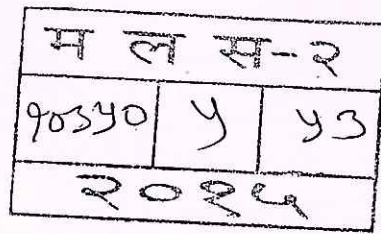 म ल स-२
१०३५० ५ ५३
२०१५